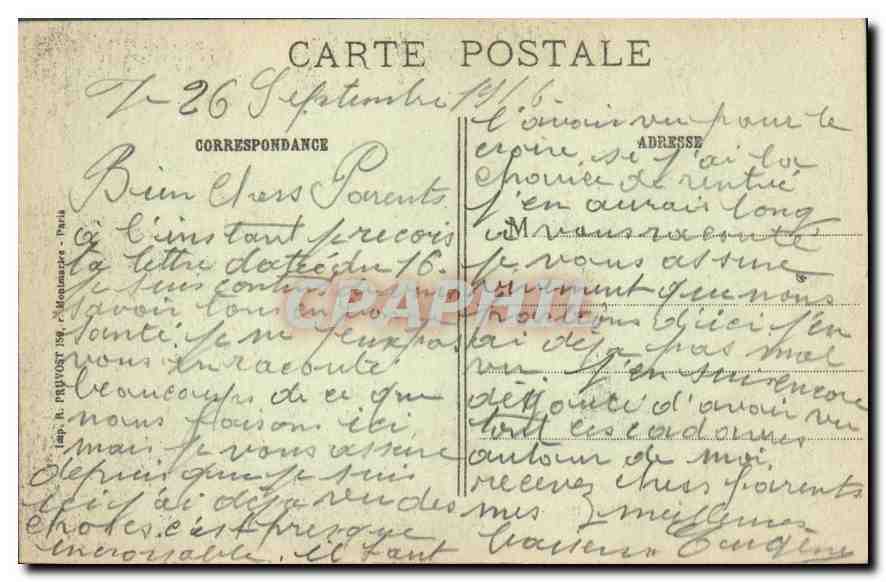 CARTE POSTALE
26 Septembre 1916
CORRESPONDANCE
Bien Chers Parents
à l'instant je recois
ta lettre datée du 16.
je suis content de vous
savoir tous en bonne
santé. je ne peux pas
vous en raconté
beaucoups de ce que
nous faisons ici
mais je vous assure
depuis que je suis
ici j'ai déja vu des
choses. c'est presque
incroyable. il faut
l'avoir vu pour le
croire. si j'ai la
chance de rentré
j'en aurais long
a vous raconté
je vous assure
vivement que nous
d'ici j'en
ai déja pas mal
vu j'en suis encore
d'avoir vu
tout ces cadavres
autour de moi
recevez chers Parents
mes meilleures
baisers Eugène
ADRESSE
M
Imp. R. PRUVOST 159, r. Montmartre - Paris
CPAPHIL